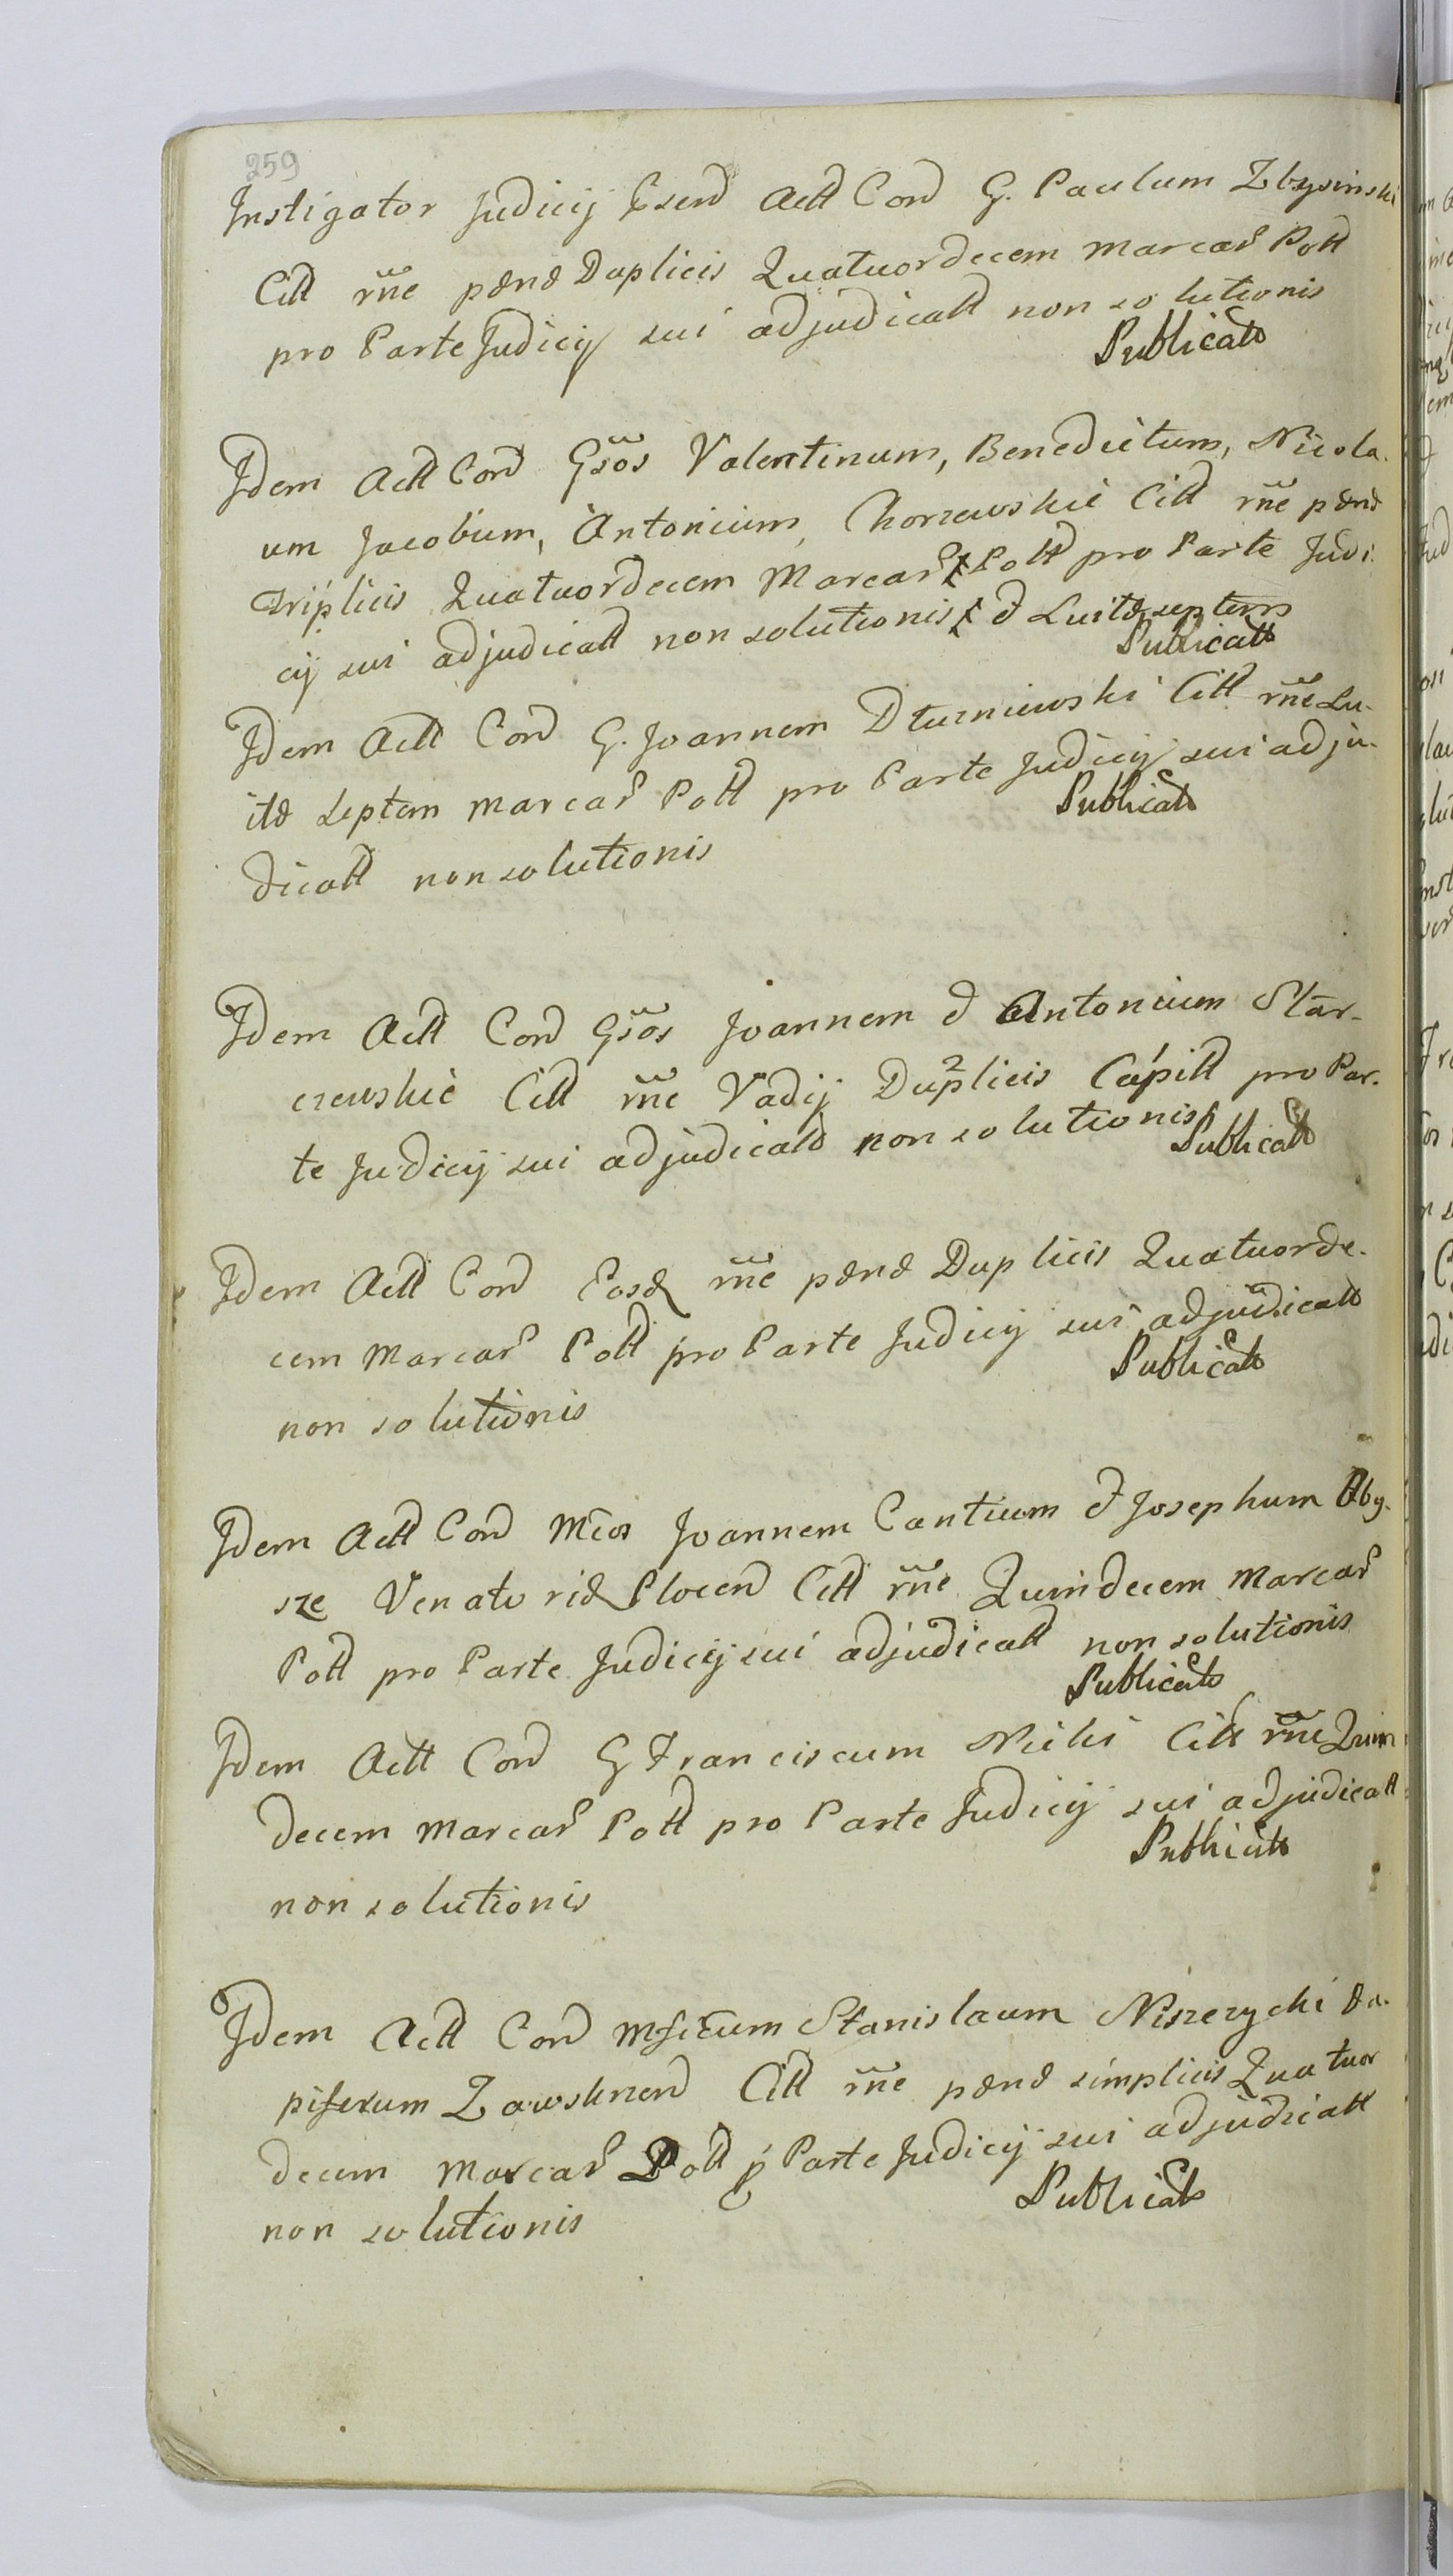 259
Instigator Judicij Exend Actt Cond G. Paulum Zbysinski
Citt rñe pænæ Duplicis Quatuordecem Marcar Pott
pro Parte Judicij sui adjudicatt non solutionis
Publicatt
Idem Actt Cond Gsõs Valentinum, Benedictum, Nicola-
um Jacobum, Antonium, Chorzewskie Citt rñe pænæ
Triplicis Quatuordecem Marcar Pott pro Parte Judi-
cij sui adjudicatt non solutionis & Luitæ septem
Publicatt
Idem Actt Cond G. Joannem Dturniewski Citt rñe Lu-
itæ septem Marcar Pott pro Parte Judicij sui adju-
Publicatt
dicatt non solutionis
Idem Actt Cond Gsõs Joannem & Antonium Star-
czewskie Citt rñe Vadij Duplicis Capitt pro Par-
te Judicij sui adjudicatt non solutionis
Publicatt
Idem Actt Cond Eosd rñe pænæ Duplicis Quatuorde-
cem Marcar Pott pro Parte Judicij sui adjudicatt
Publicatt
non solutionis
Idem Actt Cond Mcos Joannem Cantium & Josephum Oby-
sze Venatoridæ Plocen Citt rñe Quindecem Marcar
Pott pro Parte Judicij sui adjudicatt non solutionis
Publicatt
Idem Actt Cond G Franciscum Nicki Citt rñe Quin
decem Marcar Pott pro Parte Judicij sui adjudicatt
Publicatt
non solutionis
Idem Actt Cond Mficum Stanislaum Niszczycki Da-
piferum Zawsknen Citt rñe pænæ simplicis Quatuor
decem Marcar Pott p Parte Judicij sui adjudicatt
Publicatt
non solutionis